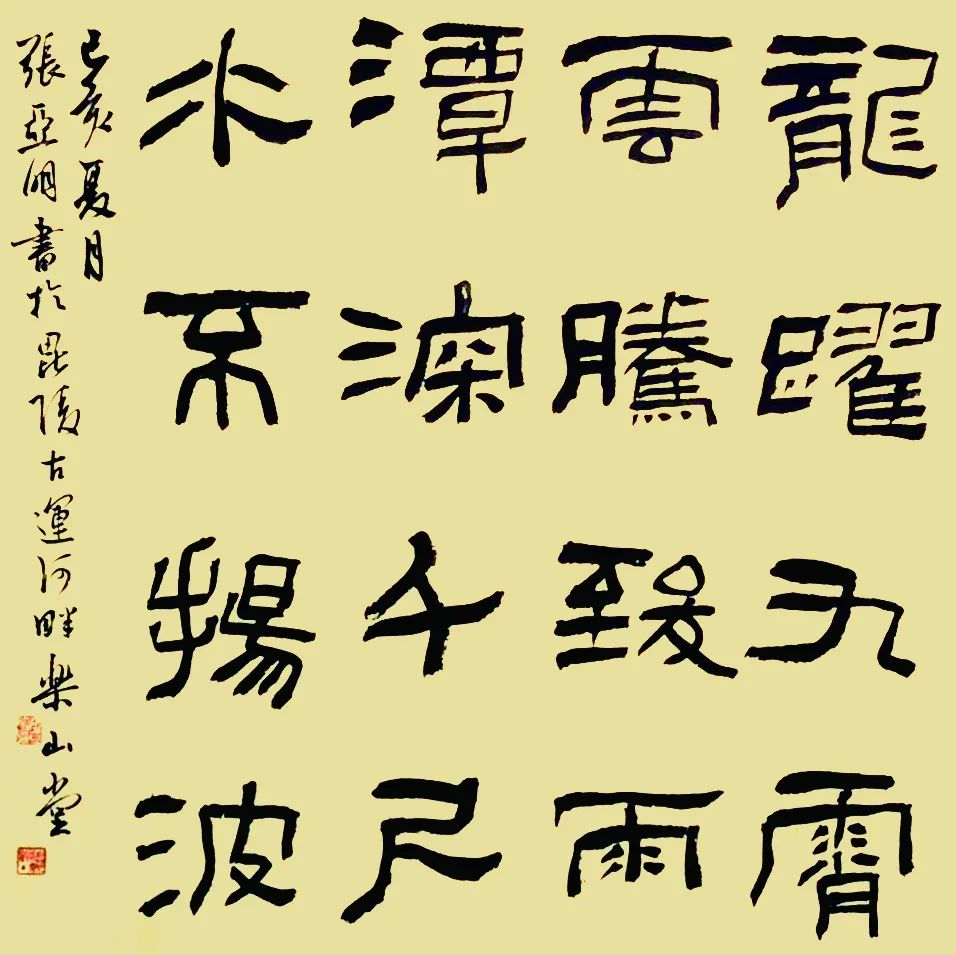 龍躍九霄
雲騰致雨
潭深千尺
水不揚波
己亥夏月
張亞明書於毘陵古運河畔樂山堂